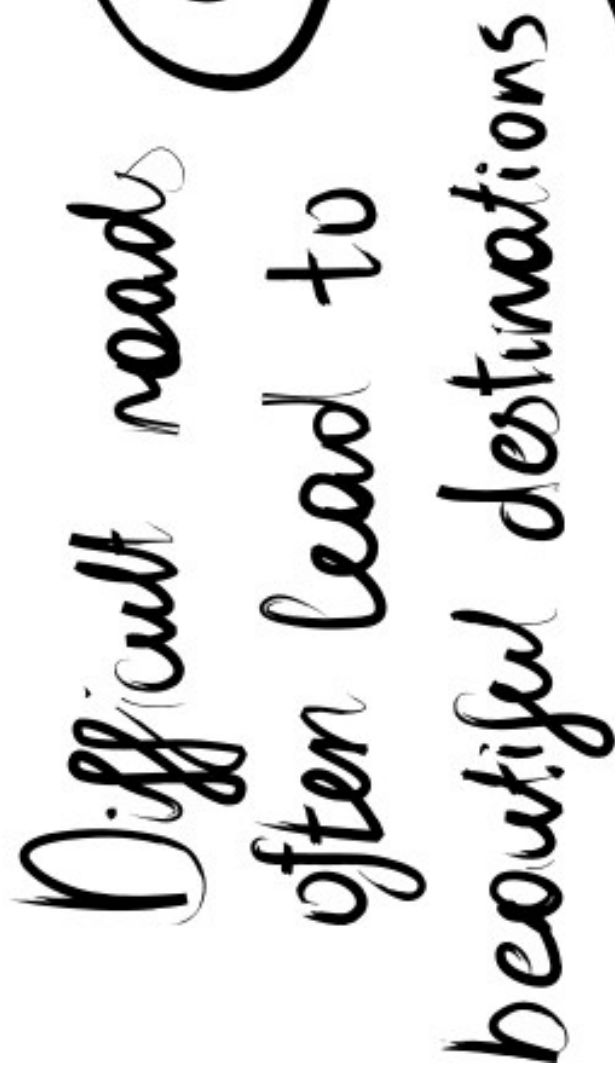 Difficult roads
often lead to
beautiful destinations